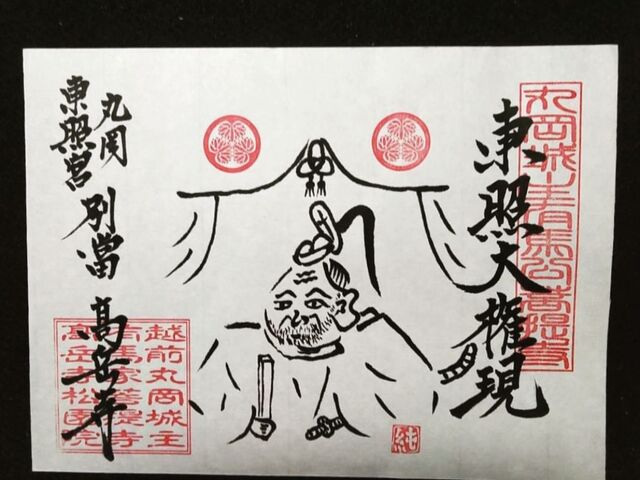 東照大権現
丸岡城主有馬公菩提寺
丸岡
東照宮
別當
高岳寺
越前丸岡城主
有馬家菩提寺
高岳寺松園院
純